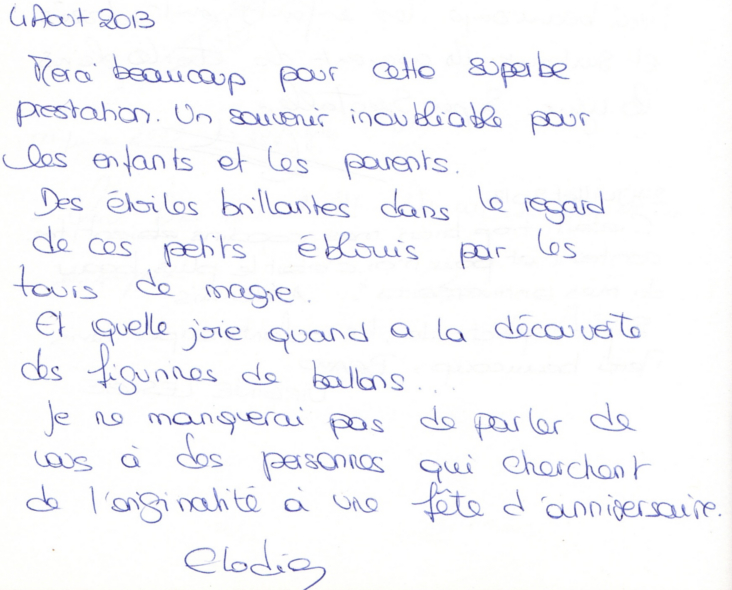 4 Aout 2013
Merci beaucoup pour cette superbe
prestation. Un souvenir inoubliable pour
les enfants et les parents.
Des étoiles brillantes dans le regard
de ces petits éblouis par les
tours de magie.
Et quelle joie quand a la découverte
des figurines de ballons...
Je ne manquerai pas de parler de
vous à des personnes qui cherchent
de l'originalité à une fête d'anniversaire.
Elodie